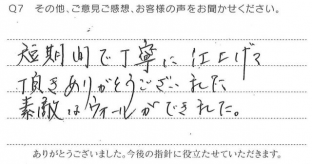 Q7 その他、ご意見ご感想、お客様の声をお聞かせください。
短期間で丁寧に仕上げて
頂きありがとうございました
素敵なウォールができました。
ありがとうございました。今後の指針に役立たせていただきます。